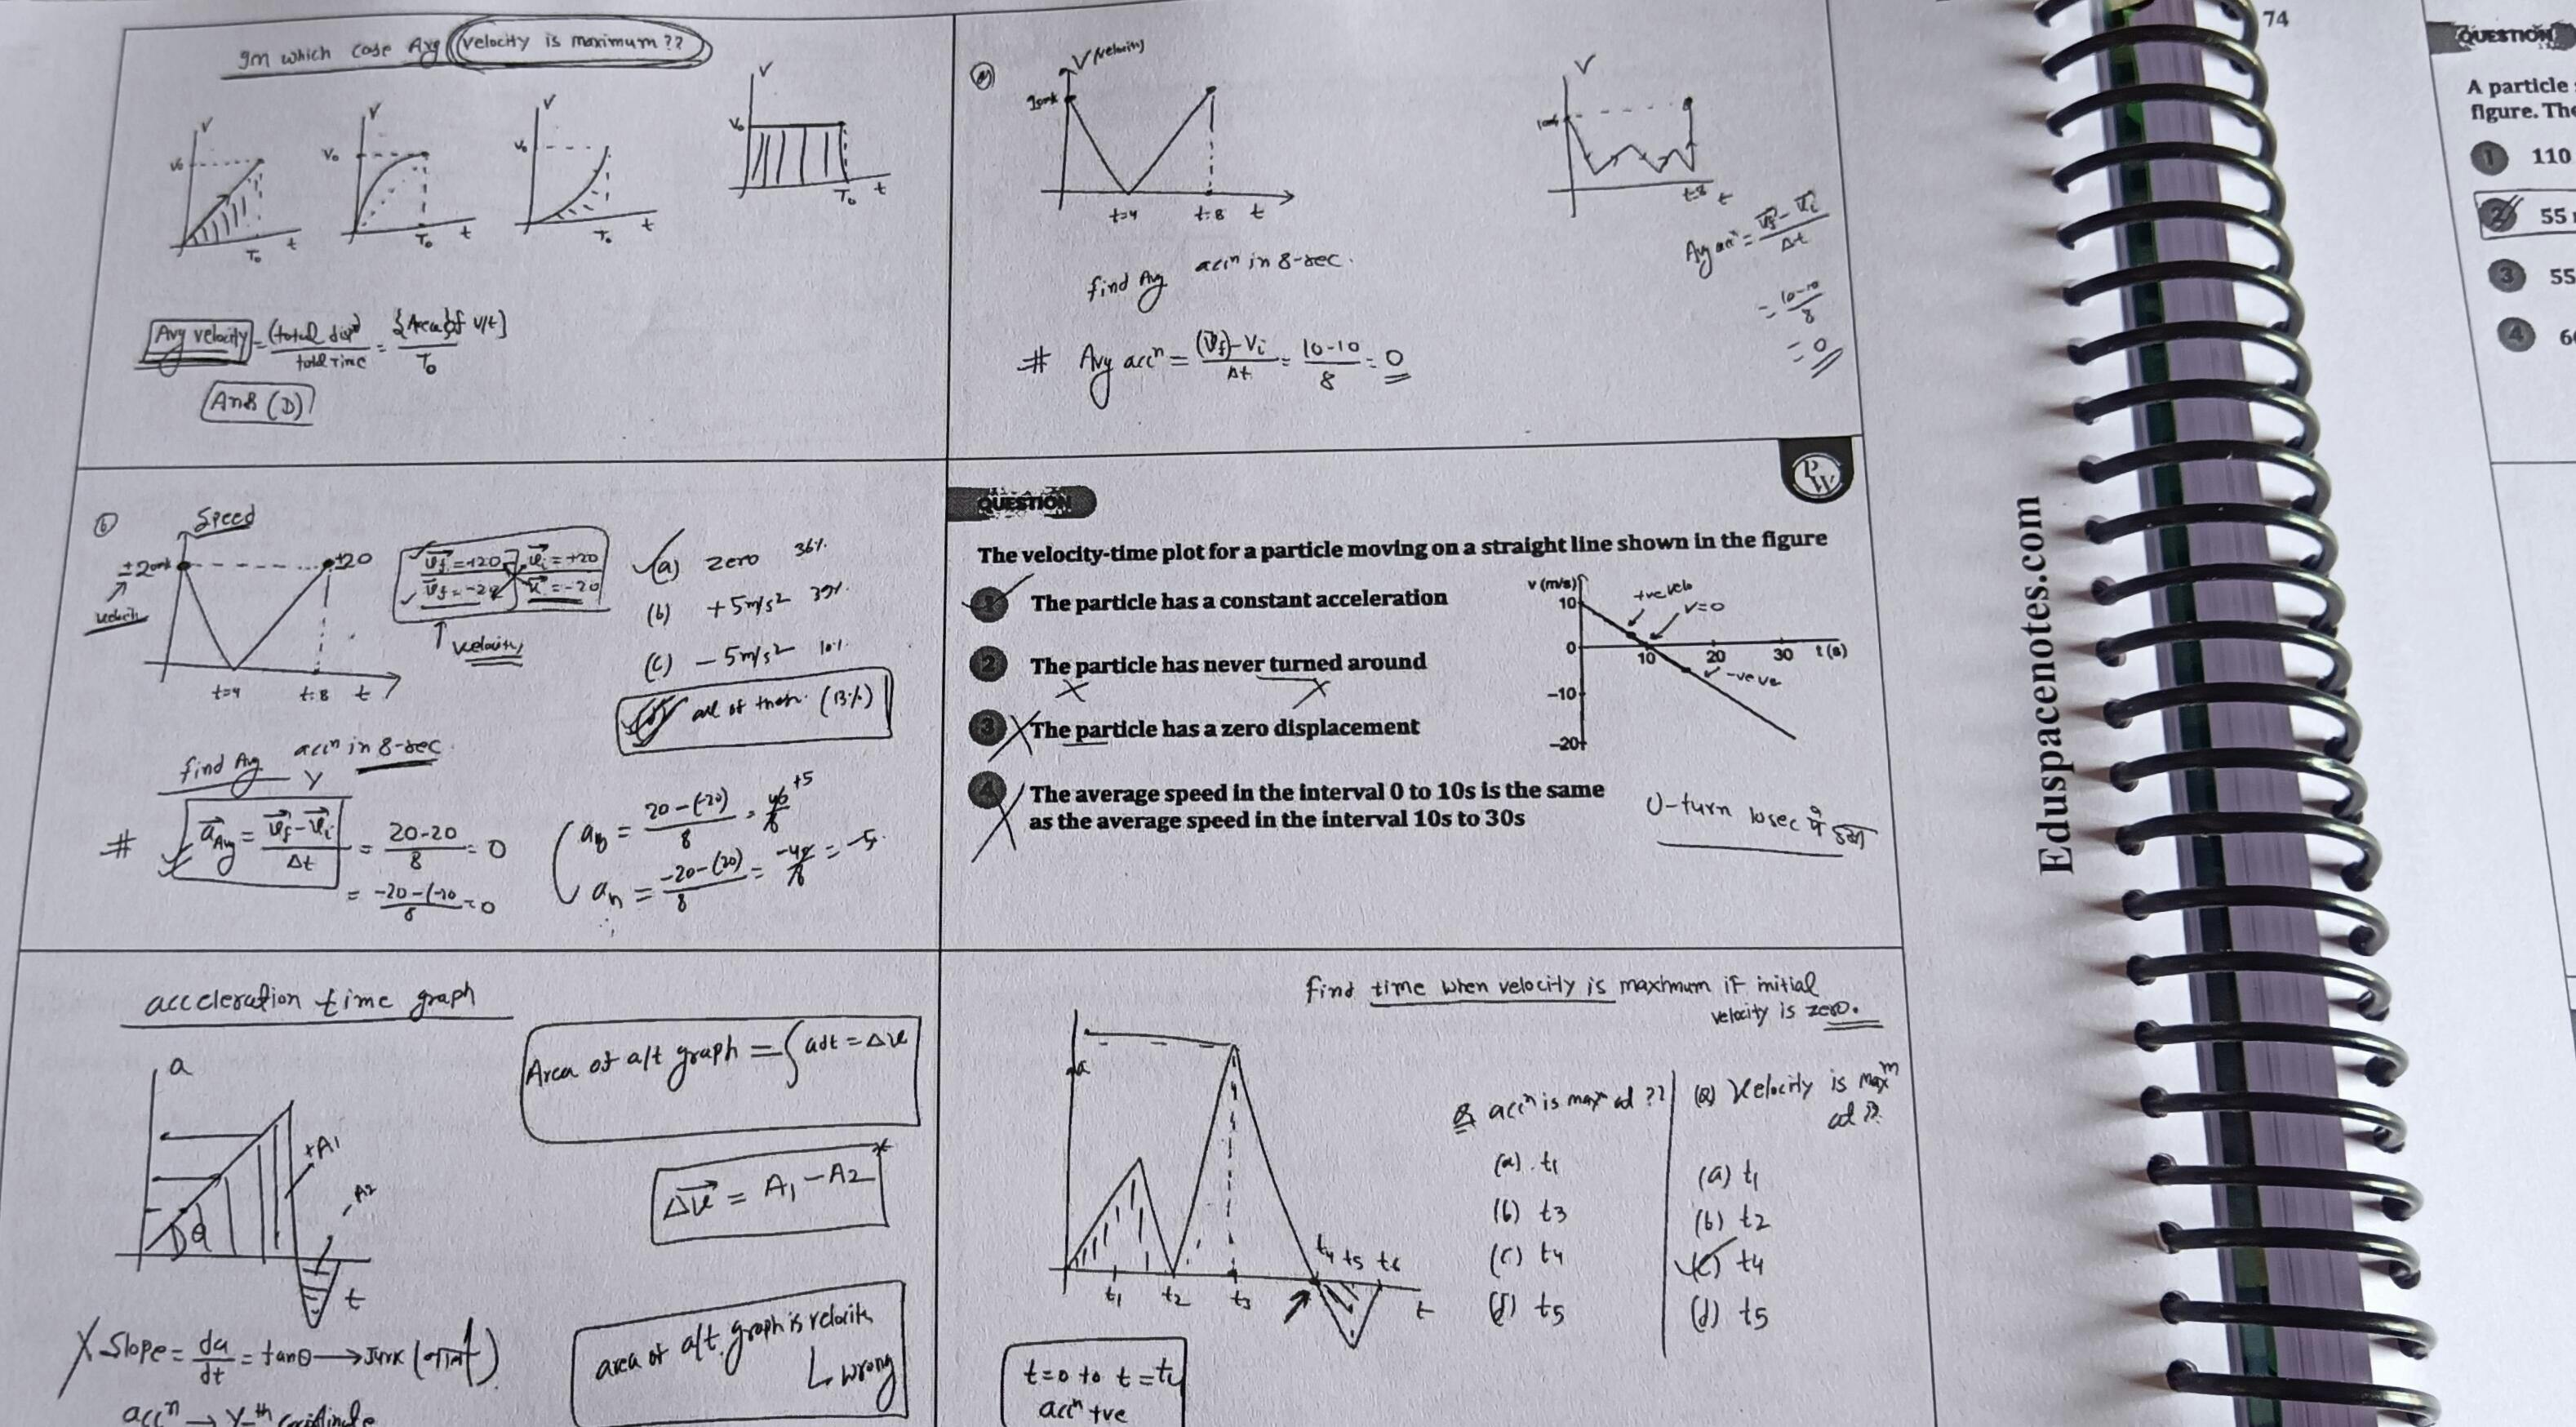 74
In which case Avg velocity is maximum??
V
V
V
V
V₀
V₀
V₀
V₀
T₀ t
T₀ t
T₀ t
T₀ t
Avg velocity = (total disp) / total Time = {Area of v/t} / T₀
Ans (D)
(a)
V (velocity)
t=4 t=8 t
V
t=8 t
find Avg accⁿ in 8-sec.
# Avg accⁿ = (V⃗f) - Vi / Δt = 10-10 / 8 = 0
Avg accⁿ = V⃗f - V⃗i / Δt
= 10-10 / 8
= 0
(b)
Speed
±20
±20
velocity
t=4 t=8 t
V⃗f = +20 V⃗i = +20
V⃗f = -20 V⃗i = -20
velocity
(a) zero 36%
(b) +5m/s² 39%
(c) -5m/s² 10%
all of them. (13%)
find Avg accⁿ in 8-sec.
# a⃗Avg = V⃗f - V⃗i / Δt = 20-20 / 8 = 0
= -20-(-20 / 8 = 0
= 20-(-20) / 8 = 40 / 8 +5
= -20-(20) / 8 = -40 / 8 = -5
PW
QUESTION
The velocity-time plot for a particle moving on a straight line shown in the figure
1 The particle has a constant acceleration
2 The particle has never turned around
3 The particle has a zero displacement
4 The average speed in the interval 0 to 10s is the same
as the average speed in the interval 10s to 30s
v (m/s)
10
0
-10
-20
10 20 30 t (s)
+ve velo
v=0
-ve ve
U-turn 10sec
acceleration time graph
a
θ
+A1
-A2
t
Area of a/t graph = ∫adt = Δv
Δv⃗ = A₁ - A2
Slope = da / dt = tanθ → Jurk
accⁿ →
area of a/t graph is velocity
↳ wrong
find time when velocity is maximum if initial
velocity is zero.
a
t₁ t₂ t₃ t₄ t₅ t₆ t
Q accⁿ is maxᵐ at ??
(a) t₁
(b) t3
(c) t4
(d) t5
(Q) Velocity is maxᵐ
at ??
(a) t₁
(b) t2
(c) t4
(d) t5
t=0 to t=
accⁿ +ve
Eduspacenotes.com
QUESTION
A particle
figure. The
1 110
2 55
3 55
4